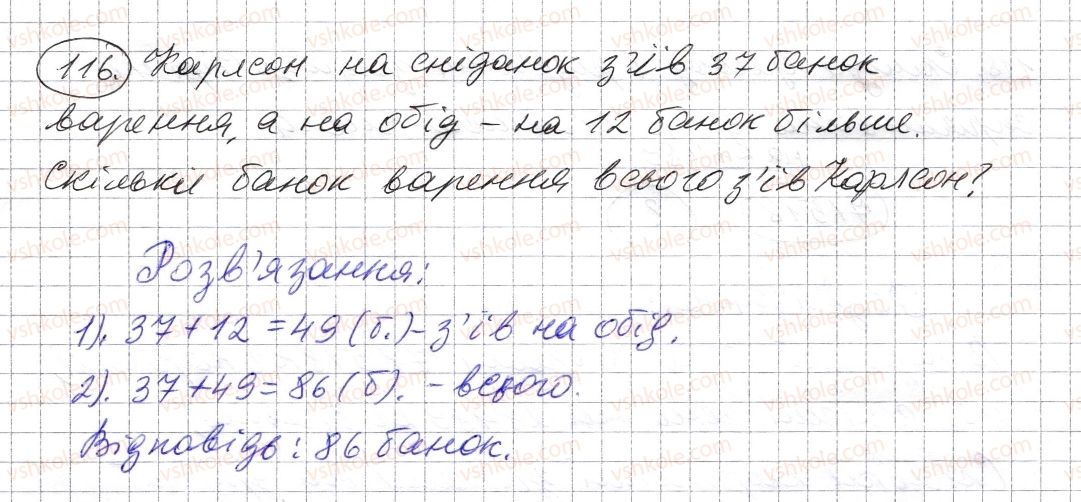 116. Карлсон на сніданок з'їв 37 банок
варення, а на обід - на 12 банок більше.
Скільки банок варення всього з'їв Карлсон?
Розв'язання:
1). 37 + 12 = 49 (б.) - з'їв на обід.
2). 37 + 49 = 86 (б). - всього.
Відповідь: 86 банок.